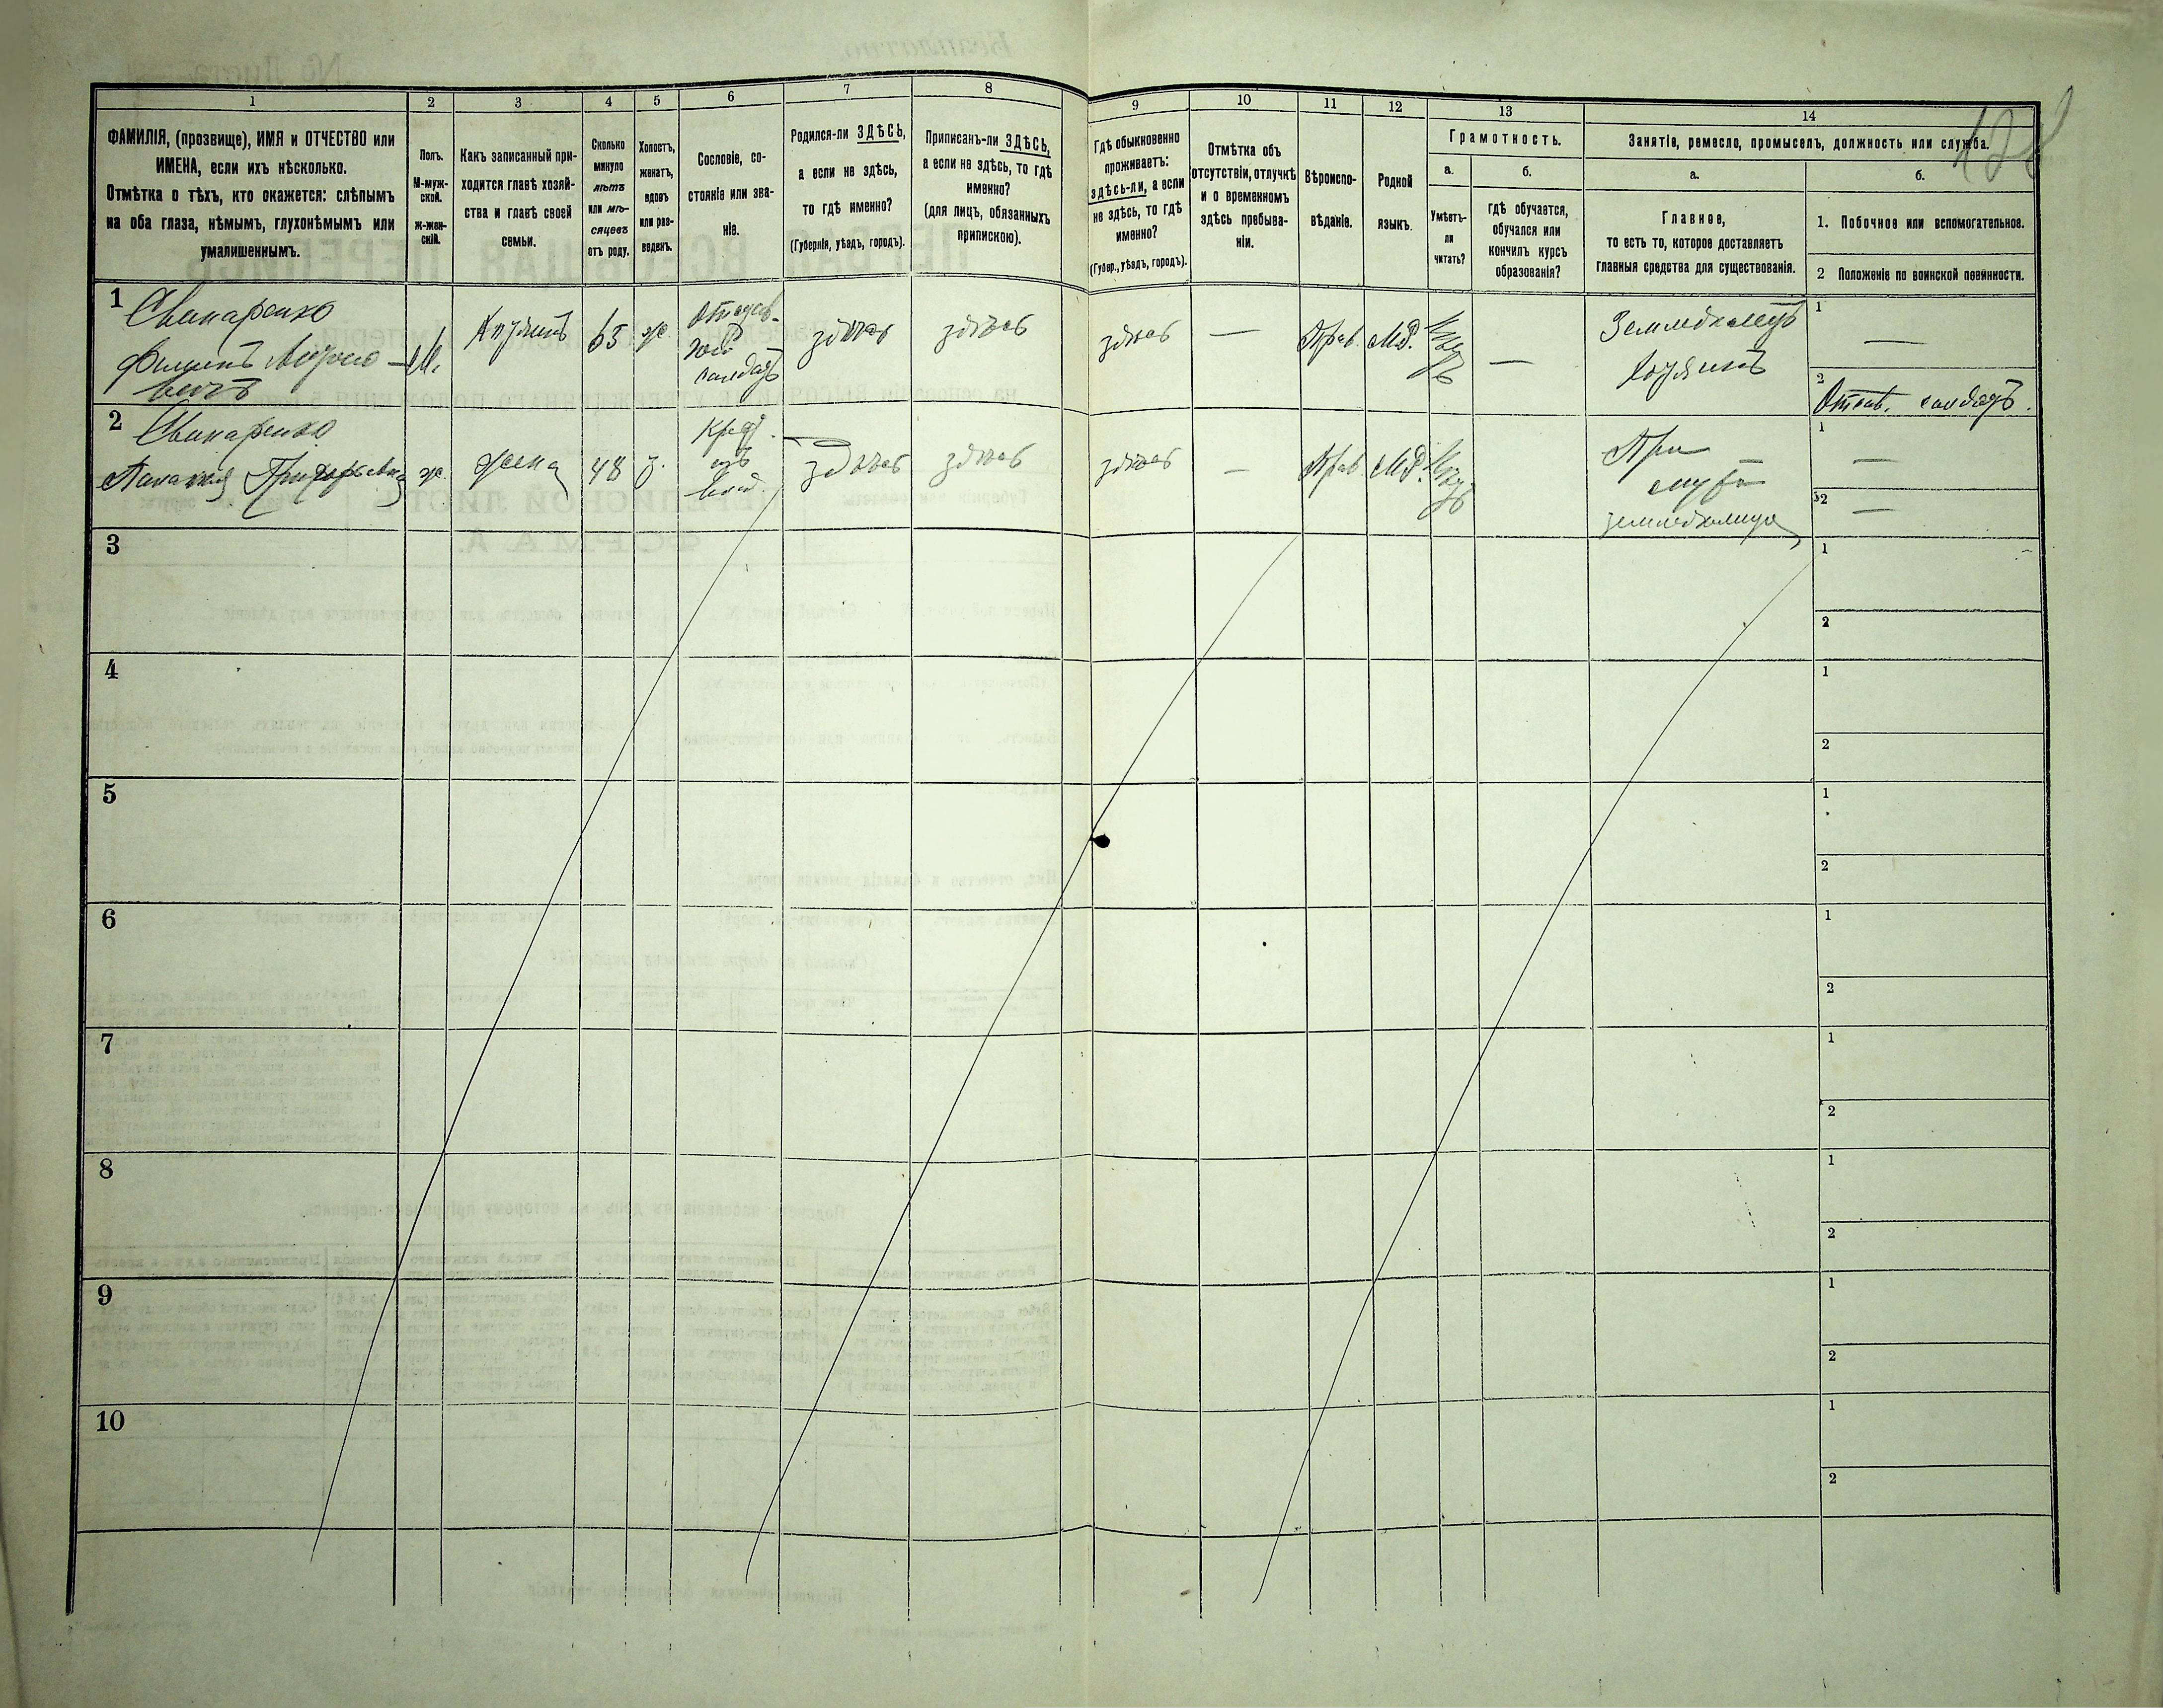 1 2 3 4 5 6 7 8 9 10 11 12 13 14
ФАМИЛІЯ, (прозвище), ИМЯ и ОТЧЕСТВО или
ИМЕНА, если ихъ нѣсколько.
Отмѣтка о тѣхъ, кто окажется: слѣпымъ
на оба глаза, нѣмымъ, глухонѣмымъ или
умалишеннымъ.
Полъ.
М-муж-
ской.
ж-жен-
скій.
Какъ записанный при-
ходится главѣ хозяй-
ства и главѣ своей
семьи.
Сколько
минуло
лѣтъ
или мѣ-
сяцевъ
отъ роду.
Холостъ,
женатъ,
вдовъ
или раз-
веденъ.
Сословіе, со-
стояніе или зва-
ніе.
Родился-ли ЗДѢСЬ,
а если не здѣсь,
то гдѣ именно?
(Губернія, уѣздъ, городъ).
Приписанъ-ли ЗДѢСЬ,
а если не здѣсь, то гдѣ
именно?
(для лицъ, обязанныхъ
припискою).
Гдѣ обыкновенно
проживаетъ:
здѣсь-ли, а если
не здѣсь, то гдѣ
именно?
(Губер., уѣздъ, городъ).
Отмѣтка объ
отсутствіи, отлучкѣ
и о временномъ
здѣсь пребыва-
ніи.
Вѣроиспо-
вѣданіе.
Родной
языкъ.
Грамотность.
а.
Умѣетъ-
ли
читать?
б.
гдѣ обучается,
обучался или
кончилъ курсъ
образованія?
Занятіе, ремесло, промыселъ, должность или служба.
а.
Главное,
то есть то, которое доставляетъ
главныя средства для существованія.
б.
1. Побочное или вспомогательное.
2 Положеніе по воинской повинности.
1
Свинаренко
Филипъ
вичъ
м.
Хозяинъ
65
ж.
солдатъ
здѣсь
здѣсь
здѣсь
—
Прав.
Мр.
—
Земледѣлецъ
Хозяинъ
1
—
2
Отстав. солдатъ.
2
Свинаренко
Григорьевна
ж.
жена
48
з.
Крест.
изъ
влад.
здѣсь
здѣсь
здѣсь
—
Прав
Мр.
При
мужѣ
земледѣлица
1
—
2
—
3
1
2
4
1
2
5
1
2
6
1
2
7
1
2
8
1
2
9
1
2
10
1
2